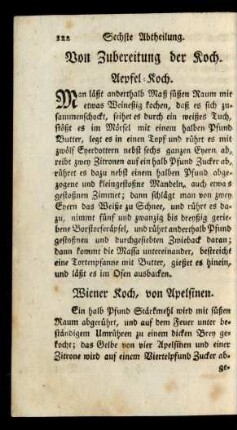 122 Sechste Abtheilung.
Von Zubereitung der Koch.
Aepfel-Koch.
Man läßt anderthalb Maß süßen Raum mit
etwas Weineßig kochen, daß es sich zu-
sammenschockt, seihet es durch ein weißes Tuch,
stößt es im Mörsel mit einem halben Pfund
Butter, legt es in einen Topf und rührt es mit
zwölf Eyerdottern nebst sechs ganzen Eyern ab,
reibt zwey Zitronen auf ein halb Pfund Zucker ab,
rühret es dazu nebst einem halben Pfund abge-
zogene und kleingestoßne Mandeln, auch etwas
gestoßnen Zimmet; dann schlägt man von zwey
Eyern das Weiße zu Schnee, und rührt es da-
zu, nimmt fünf und zwanzig bis dreyßig gerie-
bene Borstorferäpfel, und rührt anderthalb Pfund
gestoßnen und durchgesiebten Zwieback daran;
dann kommt die Massa untereinander, bestreicht
eine Tortenpfanne mit Butter, gießet es hinein,
und läßt es im Ofen ausbacken.
Wiener Koch, von Apelsinen.
Ein halb Pfund Stärkmehl wird mit süßen
Raum abgerührt, und auf dem Feuer unter be-
ständigem Umrühren zu einem dicken Brey ge-
kocht; das Gelbe von vier Apelsinen und einer
Zitrone wird auf einem Viertelpfund Zucker ab-
ge-